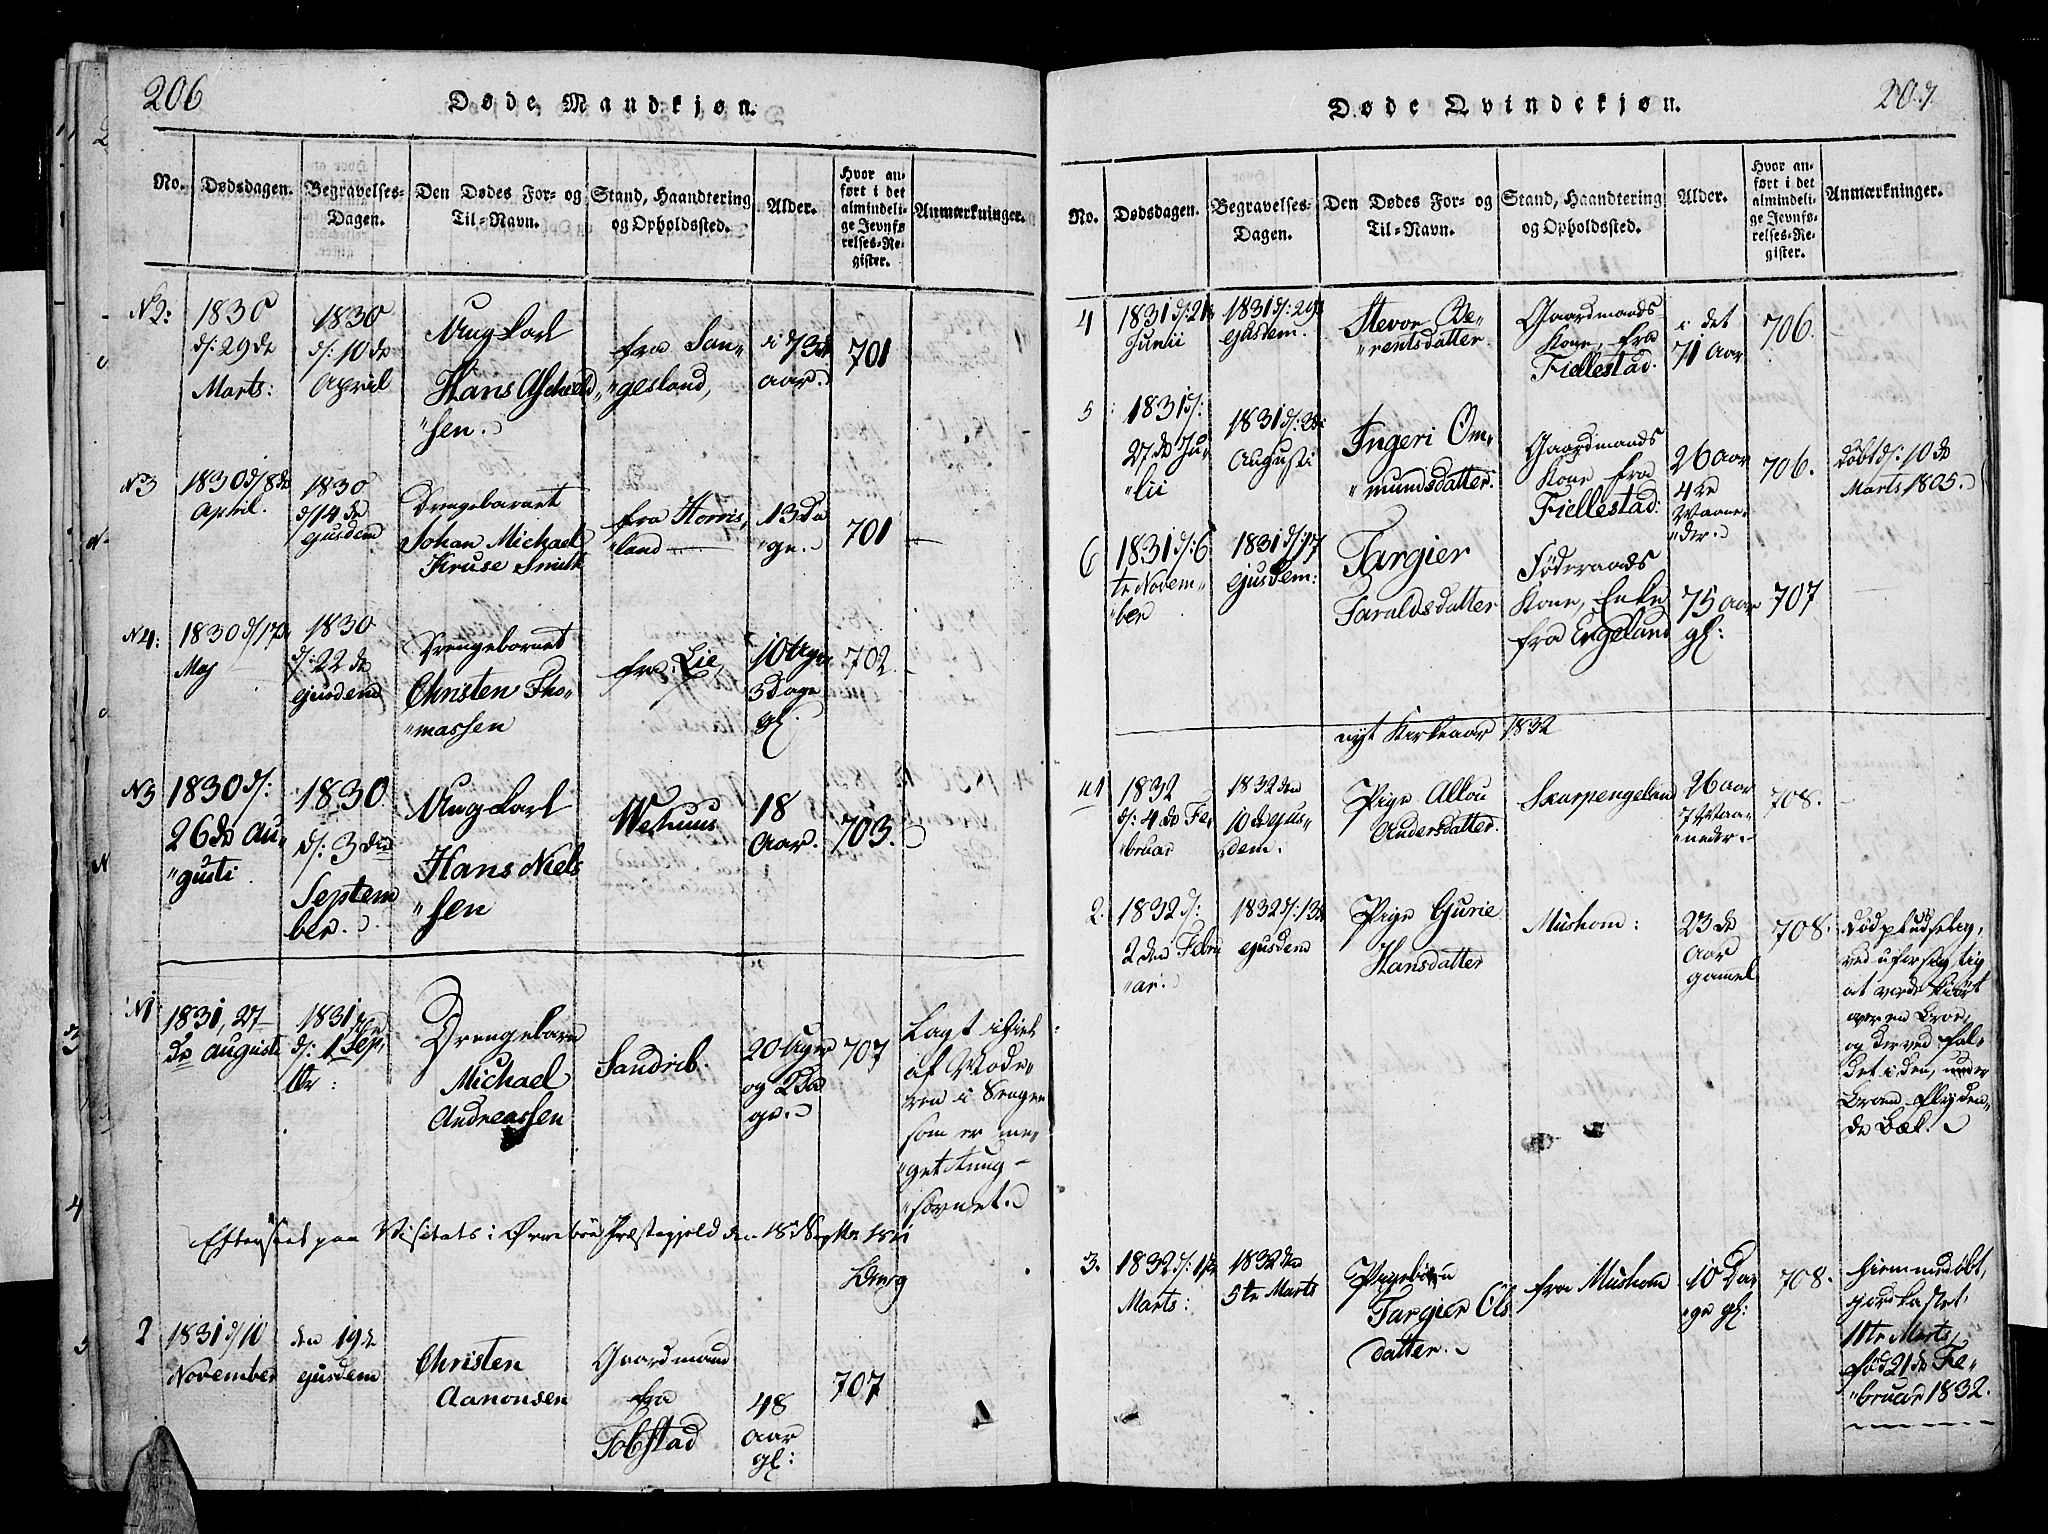 206
Døde Mandkjøn.
No.
Dødsdagen.
Begravelses-
Dagen.
Den Dødes For- og
Til-Navn.
Stand, Haandtering
og Opholdssted.
Alder.
Hvor an-
ført i det
almindeli-
ge Jevnfø-
relses-Re-
gister.
Anmærkninger.
N2:
1830
d: 29de
Marts:
1830
d: 10de
April
Ung karl
Hans
"sen.
fra Lan-
"gesland,
i 73de
aar.
701
N3
1830 d/8de
April.
1830
d/14de
ejusdem
Drengebarnet
Johan Michael
Kruse Smith
fra Horris-
"land
13 Da
"ge.
701
N4:
1830 d/17de
Maj
1830
d: 22de
ejusdem
Drengebarnet
Christen Tho-
"massen
fra Lie
10 Uger
3 Dage
gl.
702
N3
1830 d:
26de Au-
"gusti
1830
d: 3den
Septem
ber.
Ung karl
Hans Niels
"sen
Wehuus
18
Aar.
703.
N1
1831, 27
de augusti
1831
d: 1 Sep-
tbr:
Drengebarn
Michael
Andreassen
Sandrib.
20 Uger
og 2 Da
ge.
707
Lagt ihiel
af Mode-
ren i Sengen
som er me-
"get tung-
"sovnet.
Efterseet paa Visitats i Øvrebøe Præstegjeld den 18d Septbr 1831
2
1831 d/10
November
den 19de
ejusdem
Christen
Aanonsen
Gaardmand
fra
Tobstad
48
aar
gl:
707
207.
Døde Qvindekjøn.
No.
Dødsdagen.
Begravelses-
Dagen.
Den Dødes For- og
Til-Navn.
Stand, Haandtering
og Opholdssted.
Alder.
Hvor an-
ført i det
almindeli-
ge Jevnfø-
relses-Re-
gister.
Anmærkninger.
4
1831 d: 21de
Junii
1831 d: 29de
ejusdem.
Stevor Be-
"rentsdatter.
Gaardmands
Kone, fra
Fiellestad.
i det
71 Aar
706.
5
1831 d:
27de Ju-
"lii
1831 d: 3die
Augusti
Ingeri Om-
"mundsdatter.
Gaardmands
Kone fra
Fiellestad:
26 Aar
4re
Maane-
"der.
706.
døbt d: 10de
Marts 1805.
6
1831 d: 6
te Novem-
ber
1831 d/17
ejusdem:
Targier
Taraldsdatter
Føderaads
Kone, Enke
fra Engeland
75 Aar
gl:
707
nyt Kirkeaar 1832
n1
1832
d: 4de Fe-
bruar
1832 den
10de ejus-
dem.
Pige Allou
Andersdatter.
Skarpengeland
26 aar
7 Maa-
neder.
708.
2.
1832 d:
2den Febru
"ar.
1832 d: 13de
ejusdem
Pige Gurie
Hansdatter
Mushom:
23de
Aar
gamel
708.
død pludselig,
ved uforsigtig
at være kiørt
over en Broe,
og derved fal-
det i den, under
Broen flyden-
de Bæk.
3.
1832 d: 1ste
Marts:
1832 den
5te Marts
Pigebarn
Targier Ols
datter.
fra Mushom
10 Da
"ge gl:
708.
hiemmedøbt,
jordkastet
11te Marts,
født 21de Fe-
"bruar 1832.